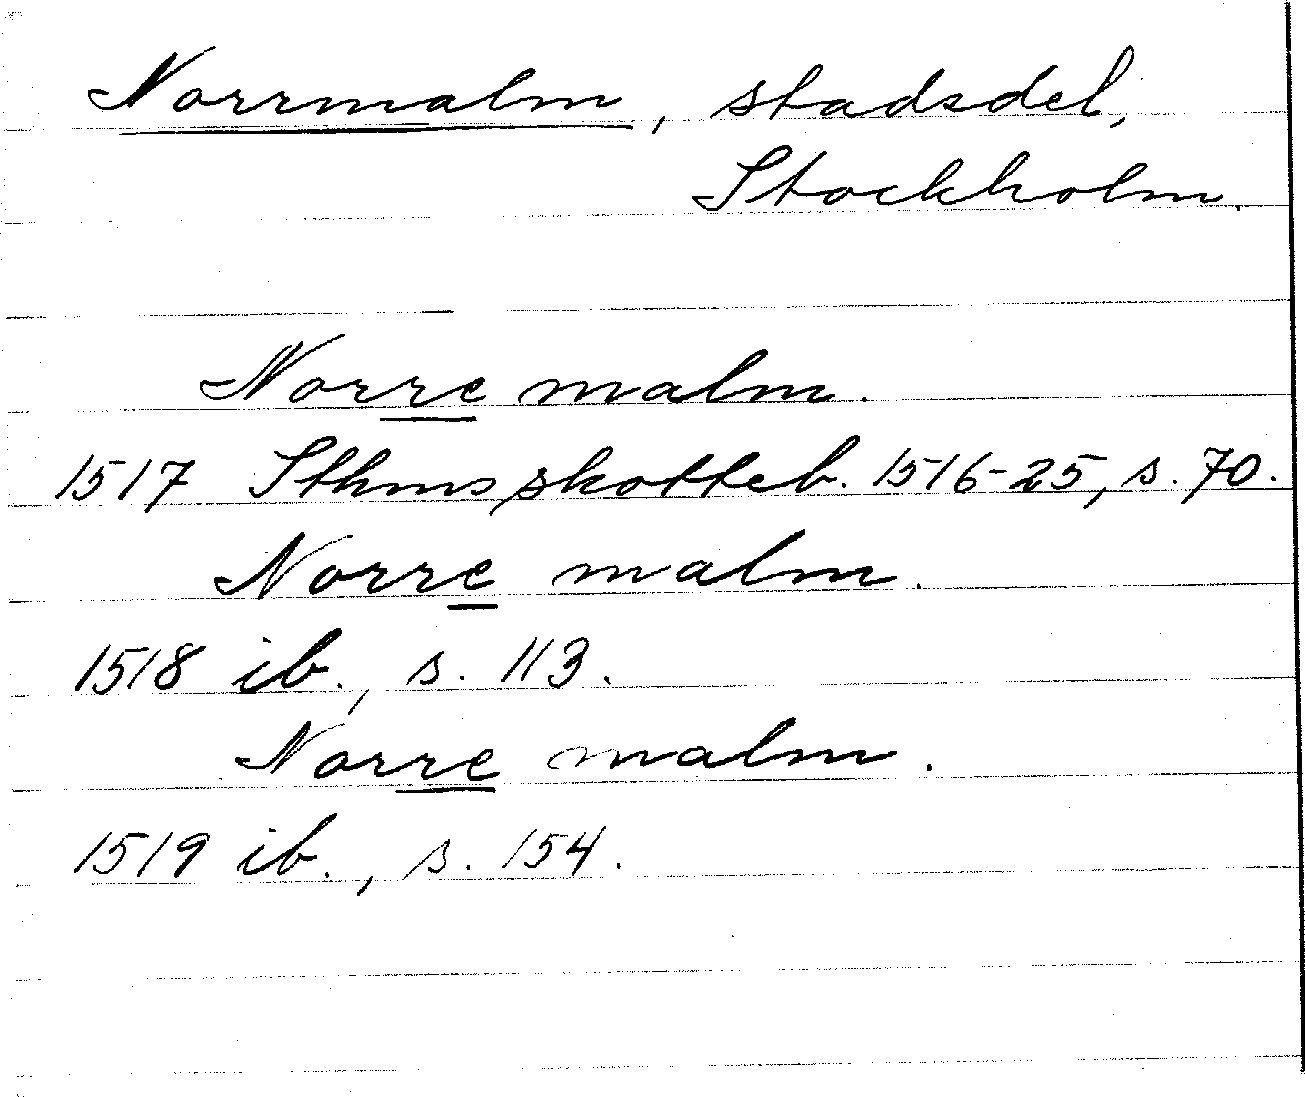 Norrmalm, stadsdel,
Stockholm.
Norre malm.
1517 Sthmsskotteb. 1516-25, s. 70.
Norre malm.
1518 ib., s. 113.
Norre malm.
1519 ib., s. 154.